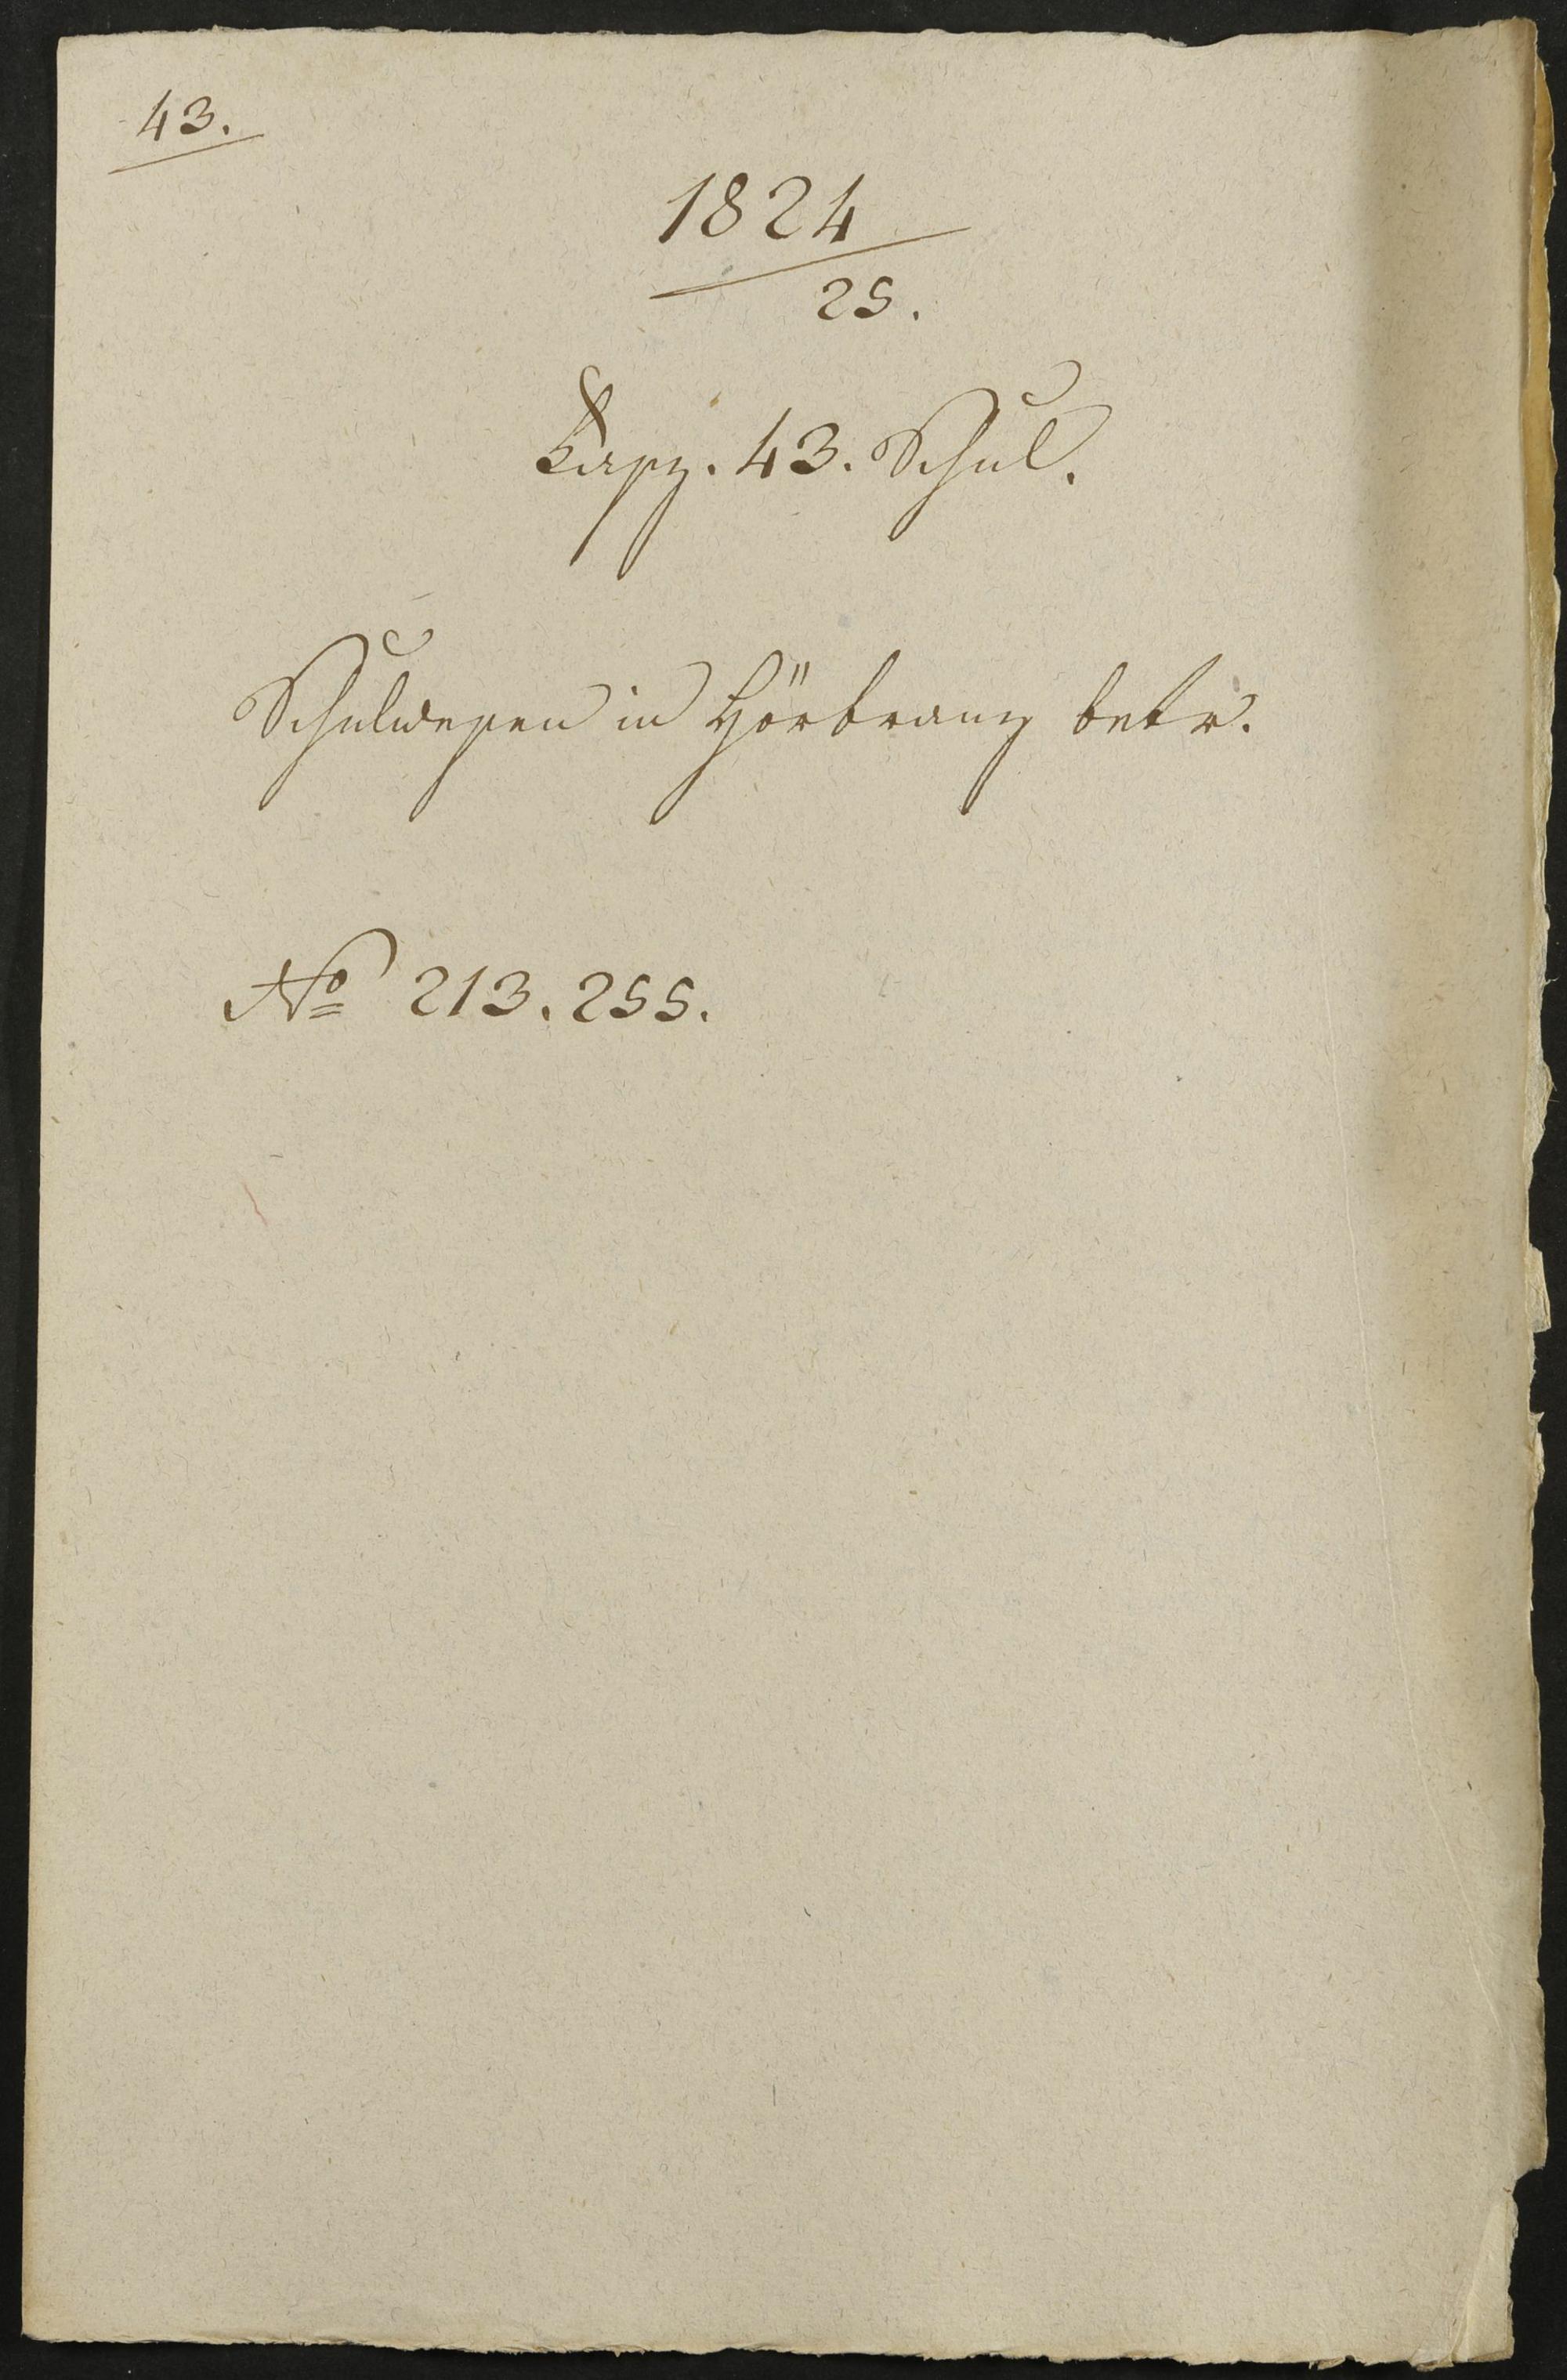 43.
1824
25.
Fasz. 43. Schul.
Schulwesen in Hörbranz betr.
No 213. 255.